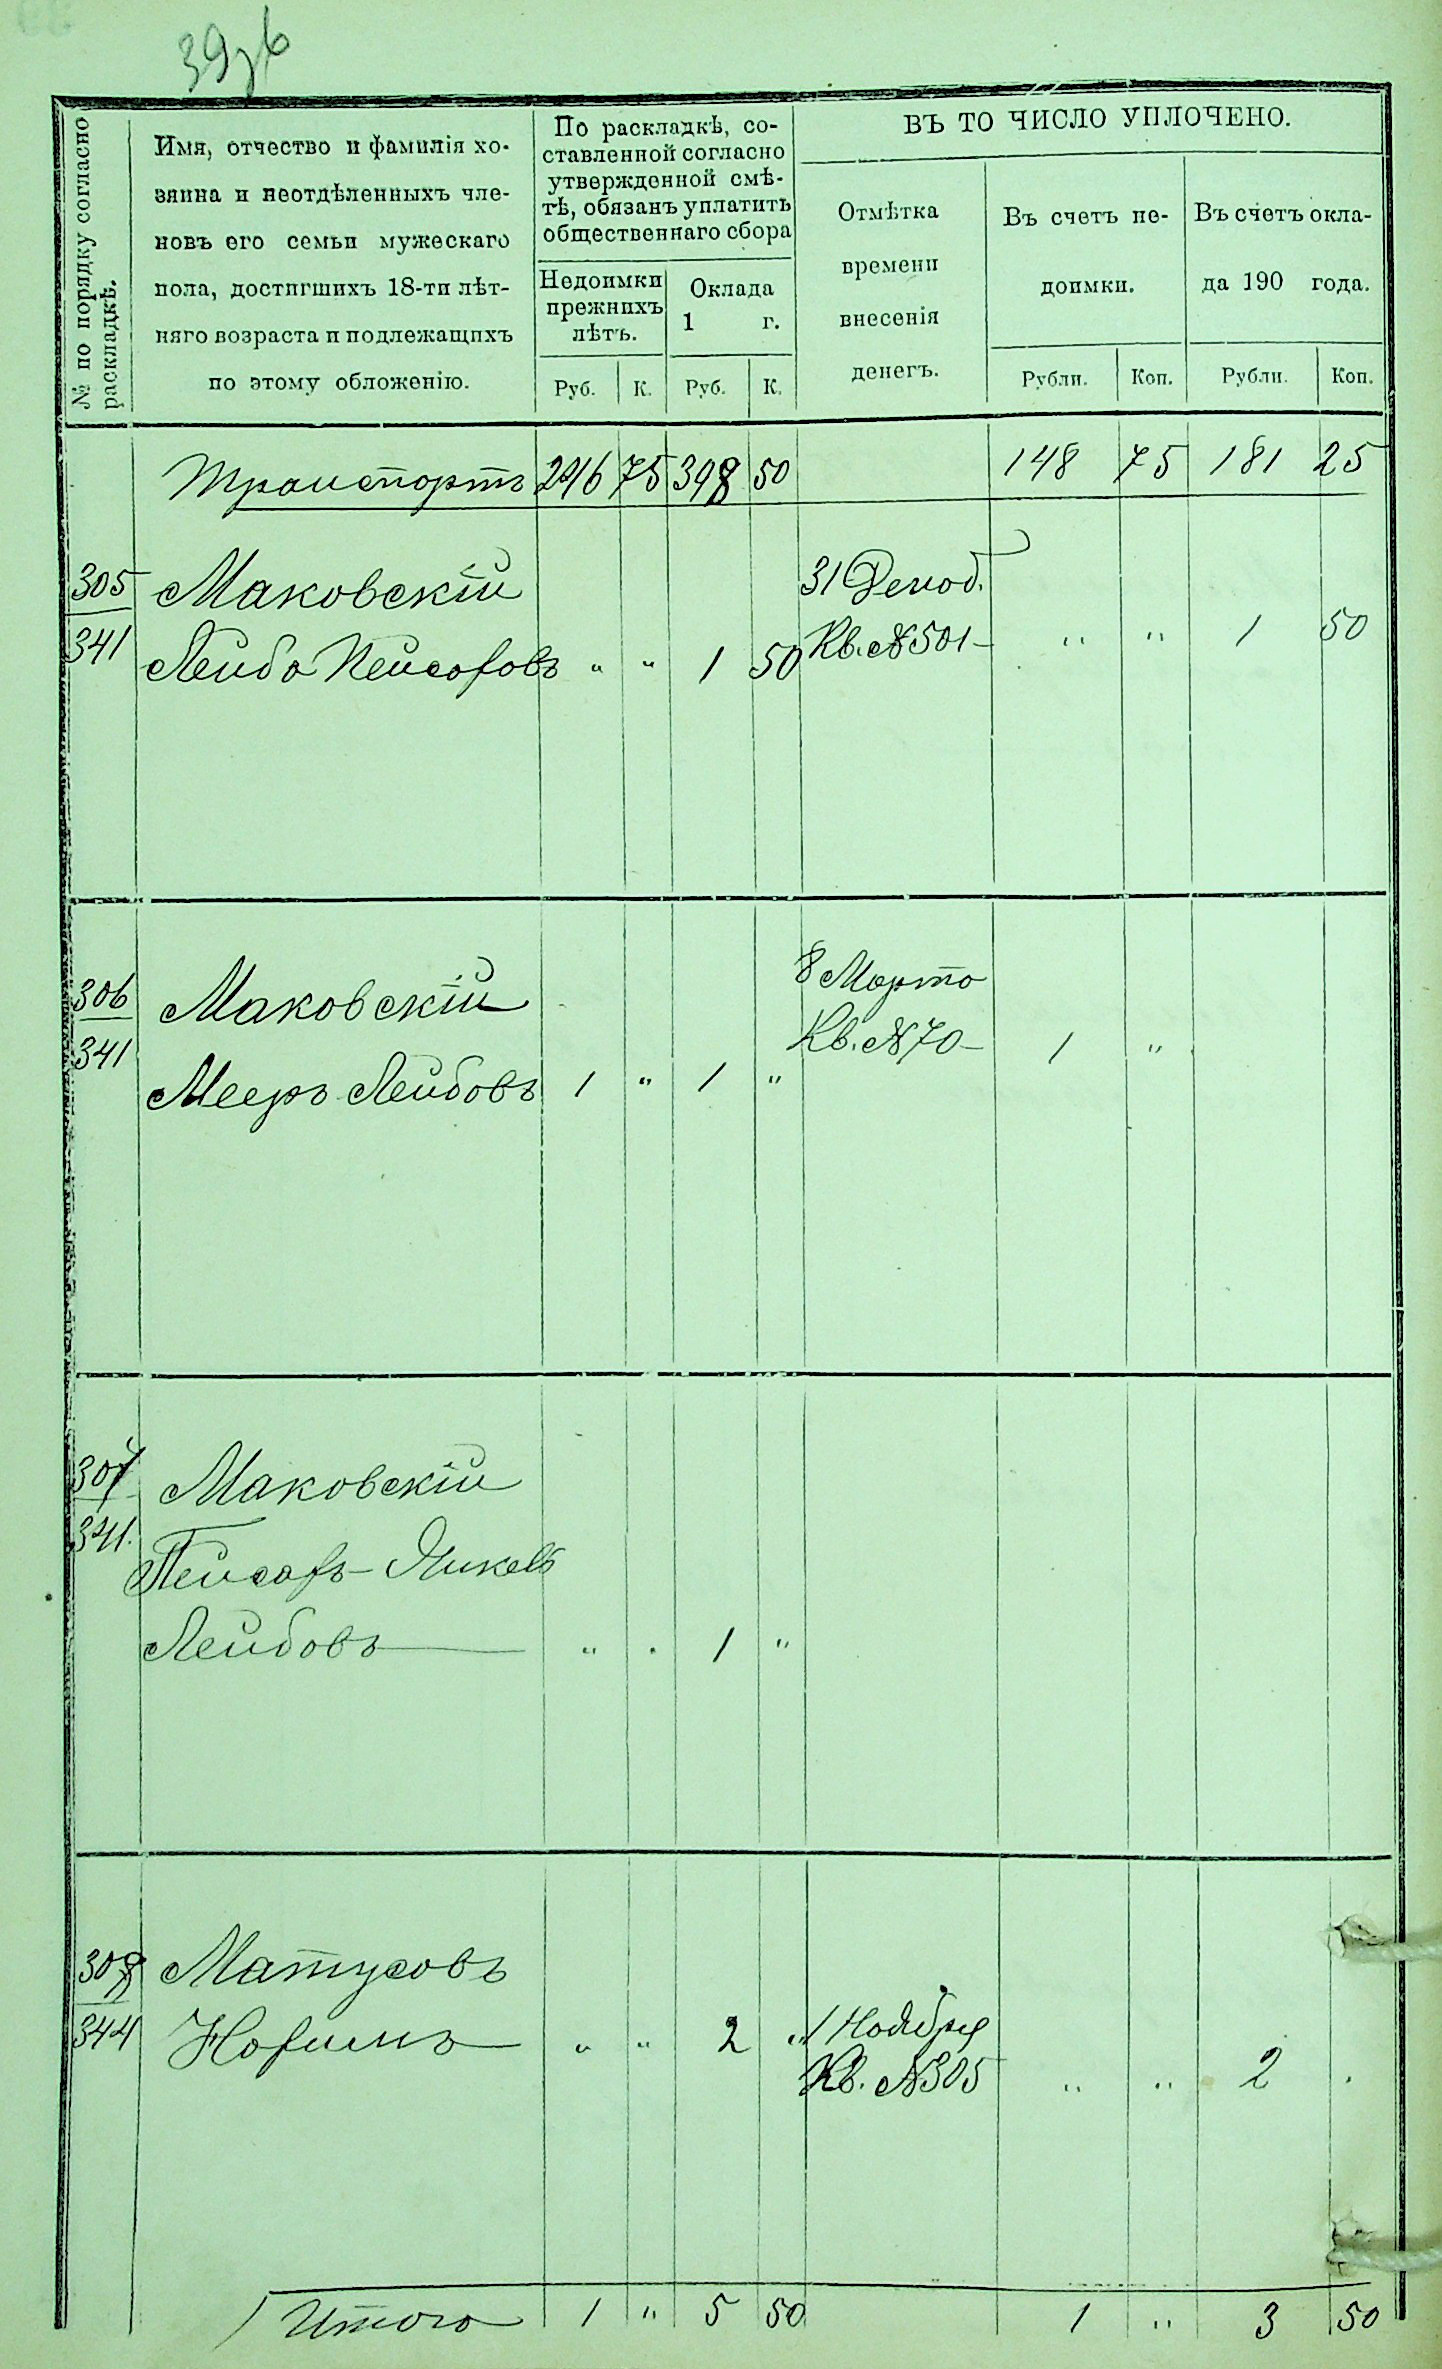 39об
№ по порядку согласно
раскладкѣ.
Имя, отчество и фамилія хо-
зяина и неотдѣленныхъ чле-
новъ его семьи мужескаго
пола, достигшихъ 18-ти лѣт-
няго возраста и подлежащихъ
по этому обложенію.
По раскладкѣ, со-
ставленной согласно
утвержденной смѣ-
тѣ, обязанъ уплатить
общественнаго сбора
Недоимки
прежнихъ
лѣтъ.
Оклада
1 г.
Руб. К. Руб. К.
ВЪ ТО ЧИСЛО УПЛОЧЕНО.
Отмѣтка
времени
внесенія
денегъ.
Въ счетъ не-
доимки.
Въ счетъ окла-
да 190 года.
Рубли. Коп. Рубли. Коп.
Транспортъ 246 75 398 50 148 75 181 25
305 Маковскій 31 Декаб.
341 Лейба Пейсаховъ " " 1 50 Кв. №501 " " 1 50
306 Маковскій 8 Марта
341 Мееръ Лейбовъ 1 " 1 " Кв. №70 1 "
307 Маковскій
341. Пейсахъ-Янкель
Лейбовъ " . 1 "
308 Матусовъ
344 Нохимъ " " 2 " 1 Ноября
Кв. №305 " " 2 .
Итого 1 " 5 50 1 " 3 50